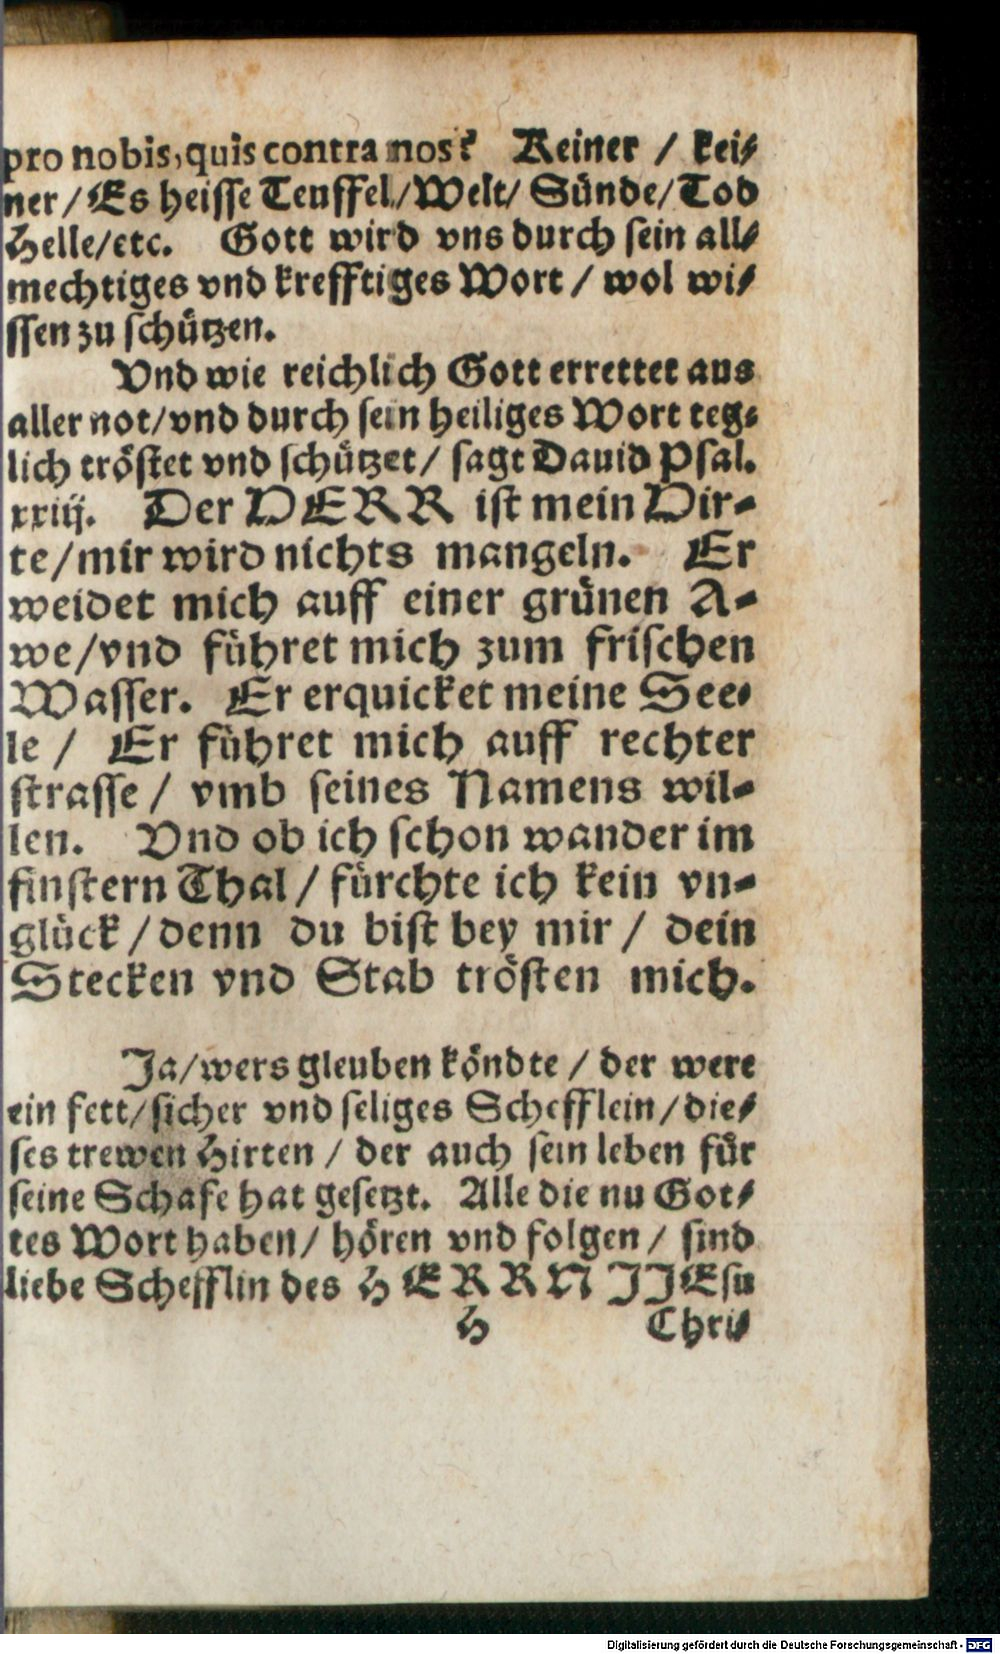 pro nobis, quis contra nos? Keiner / kei⸗
ner / Es heisse Teuffel / Welt / Sünde / Tod
Helle / etc. Gott wird vns durch sein all⸗
mechtiges vnd krefftiges Wort / wol wi⸗
ssen zu schützen.
Vnd wie reichlich Gott errettet aus
aller not / vnd durch sein heiliges Wort teg⸗
lich tröstet vnd schützet / sagt Dauid Psal.
xxiij. Der HERR ist mein Hir⸗
te / mir wird nichts mangeln. Er
weidet mich auff einer grünen A⸗
we / vnd führet mich zum frischen
Wasser. Er erquicket meine See⸗
le / Er führet mich auff rechter
strasse / vmb seines Namens wil⸗
len. Vnd ob ich schon wander im
finstern Thal / fürchte ich kein vn⸗
glück / denn du bist bey mir / dein
Stecken vnd Stab trösten mich.
Ja / wers gleuben köndte / der were
ein fett / sicher vnd seliges Schefflein / die⸗
ses trewen Hirten / der auch sein leben für
seine Schafe hat gesetzt. Alle die nu Got⸗
tes Wort haben / hören vnd folgen / sind
liebe Schefflin des HERRN JJEsu
H Chri⸗
Digitalisierung gefördert durch die Deutsche Forschungsgemeinschaft - DFG